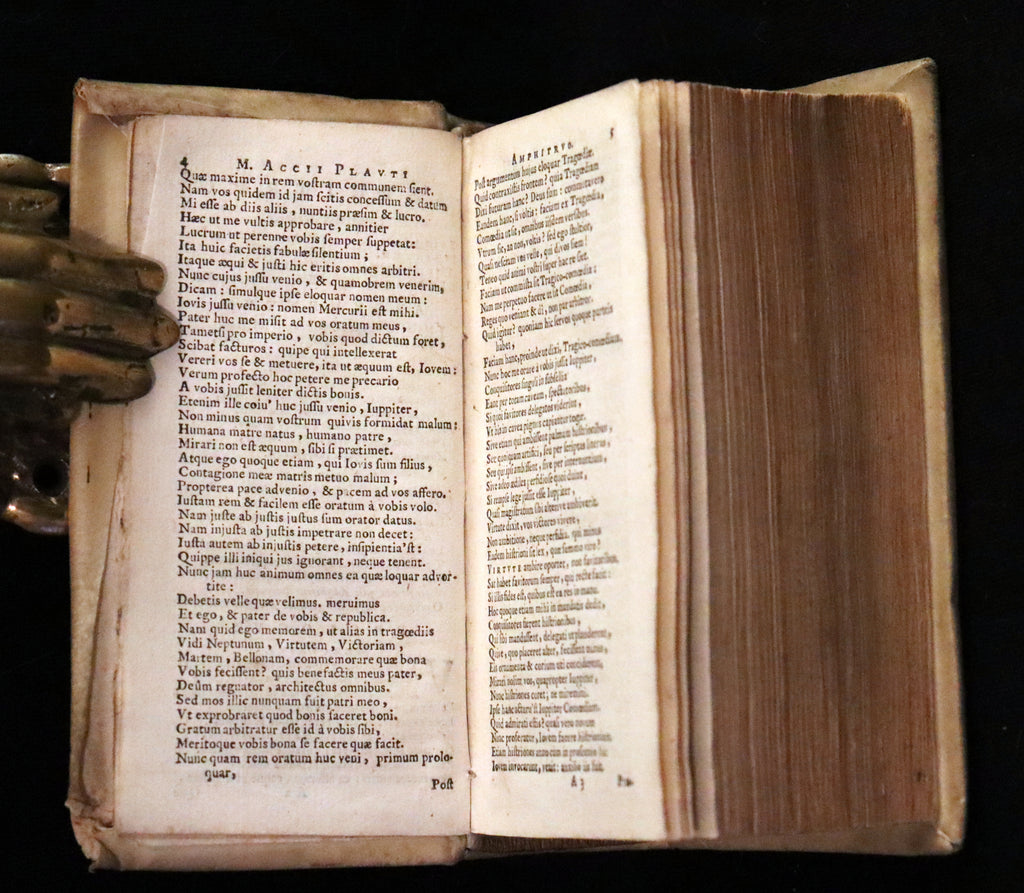 4 M. ACCII PLAVTI
Quæ maxime in rem vostram communem sient.
Nam vos quidem id jam scitis concessum & datum
Mi esse ab diis aliis, nuntiis præsim & lucro.
Hæc ut me vultis approbare, annitier
Lucrum ut perenne vobis semper suppetat:
Ita huic facietis fabulæ silentium;
Itaque æqui & justi hic eritis omnes arbitri.
Nunc cujus jussu venio, & quamobrem venerim,
Dicam: simulque ipse eloquar nomen meum:
Iovis jussu venio: nomen Mercurii est mihi.
Pater huc me misit ad vos oratum meus,
Tametsi pro imperio, vobis quod dictum foret,
Scibat facturos: quipe qui intellexerat
Vereri vos se & metuere, ita ut æquum est, Iovem:
Verum profecto hoc petere me precario
A vobis jussit leniter dictis bonis.
Etenim ille coiu' huc jussu venio, Iuppiter,
Non minus quam vostrum quivis formidat malum:
Humana matre natus, humano patre,
Mirari non est æquum, sibi si prætimet.
Atque ego quoque etiam, qui Iovis sum filius,
Contagione meæ matris metuo malum;
Propterea pace advenio, & pacem ad vos affero.
Iustam rem & facilem esse oratum à vobis volo.
Nam juste ab justis justus sum orator datus.
Nam injusta ab justis impetrare non decet:
Iusta autem ab injustis petere, insipientia'st:
Quippe illi iniqui jus ignorant, neque tenent.
Nunc jam huc animum omnes ea quæ loquar advor-
tite:
Debetis velle quæ velimus. meruimus
Et ego, & pater de vobis & republica.
Nam quid ego memorem, ut alias in tragœdiis
Vidi Neptunum, Virtutem, Victoriam,
Martem, Bellonam, commemorare quæ bona
Vobis fecissent? quis benefactis meus pater,
Deûm regnator, architectus omnibus.
Sed mos illic nunquam fuit patri meo,
Vt exprobraret quod bonis faceret boni.
Gratum arbitratur esse id à vobis sibi,
Meritoque vobis bona se facere quæ facit.
Nunc quam rem oratum huc veni, primum prolo-
quar,
Post
AMPHITRVO. 5
Post argumentum hujus eloquar Tragœdiæ.
Quid contraxistis frontem? quia Tragœdiam
Dixi futuram hanc? Deus sum: commutavero
Eandem hanc, si voltis: faciam ex Tragœdia,
Comœdia ut sit, omnibus iisdem versibus.
Vtrum sit, an non, voltis? sed ego stultior,
Quasi nesciam vos velle, qui divos siem?
Teneo quid animi vostri super hac re siet.
Faciam ut commista sit Tragico-comœdia:
Nam me perpetuo facere ut sit Comœdia,
Reges quo veniant & di, non par arbitror.
Quid igitur? quoniam hic servos quoque parteis
habet,
Faciam hanc, proinde ut dixi, Tragico-comœdiam.
Nunc hoc me orare à vobis jussit Iuppiter,
Conquisitores singuli in subsellia
Eant per totam caveam, spectatoribus,
Si qui favitores delegatos viderint,
Vt his in cavea pignus capiantur togæ.
Sive etiam qui ambissent palmam histrionibus,
Sive cuiquam artifici, seu per scriptas literas,
Seu qui ipsi ambissent, sive per internuntium,
Sive adeo ædiles perfidiose quoi duint,
Si rempse lege jussit esse Iuppiter,
Quasi magistratum sibi alterive ambiverit.
Virtute dixit, vos victores vivere,
Non ambitione, neque perfidia. qui minus
Eadem histrioni sit lex, quæ summo viro?
VIRTVTE ambire oportet, non favitoribus.
Sat habet favitorum semper, qui recte facit:
Si illis fides est, quibus est ea res in manu.
Hoc quoque etiam mihi in mandatis dedit,
Conquisitores fierent histrionibus,
Qui sibi mandassent, delegati ut plauderent,
Quive, quo placeret alter, fecissent minus,
Eis ornamenta & corium uti conciderent.
Mirari nolim vos, quapropter Iuppiter,
Nunc histriones curet; ne miremini.
Ipse hanc acturu'st Iuppiter Comœdiam.
Quid admirati estis? quasi vero novum
Nunc proferatur, Iovem facere histrioniam.
Etiam histriones anno cum in proscenio hic
Iovem invocarunt, venit: auxilio is fuit.
A 3